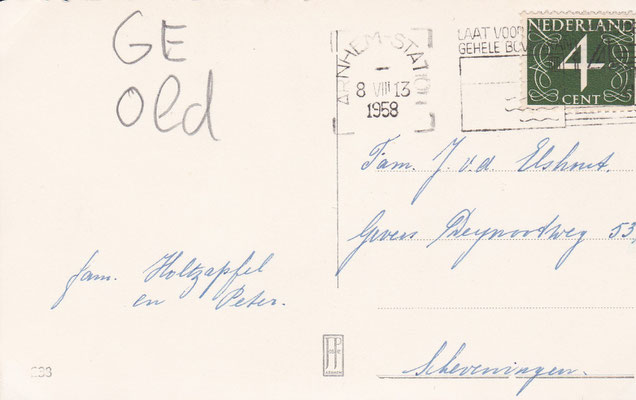 GE
Old
ARNHEM-STATION
8 VIII 13
1958
LAAT VOOR
GEHELE BOV
NEDERLAND
4
CENT
Fam. J. v.d. Elshout.
Gevers Deynootweg 53,
Scheveningen.
fam. Holtzapfel
en Peter.